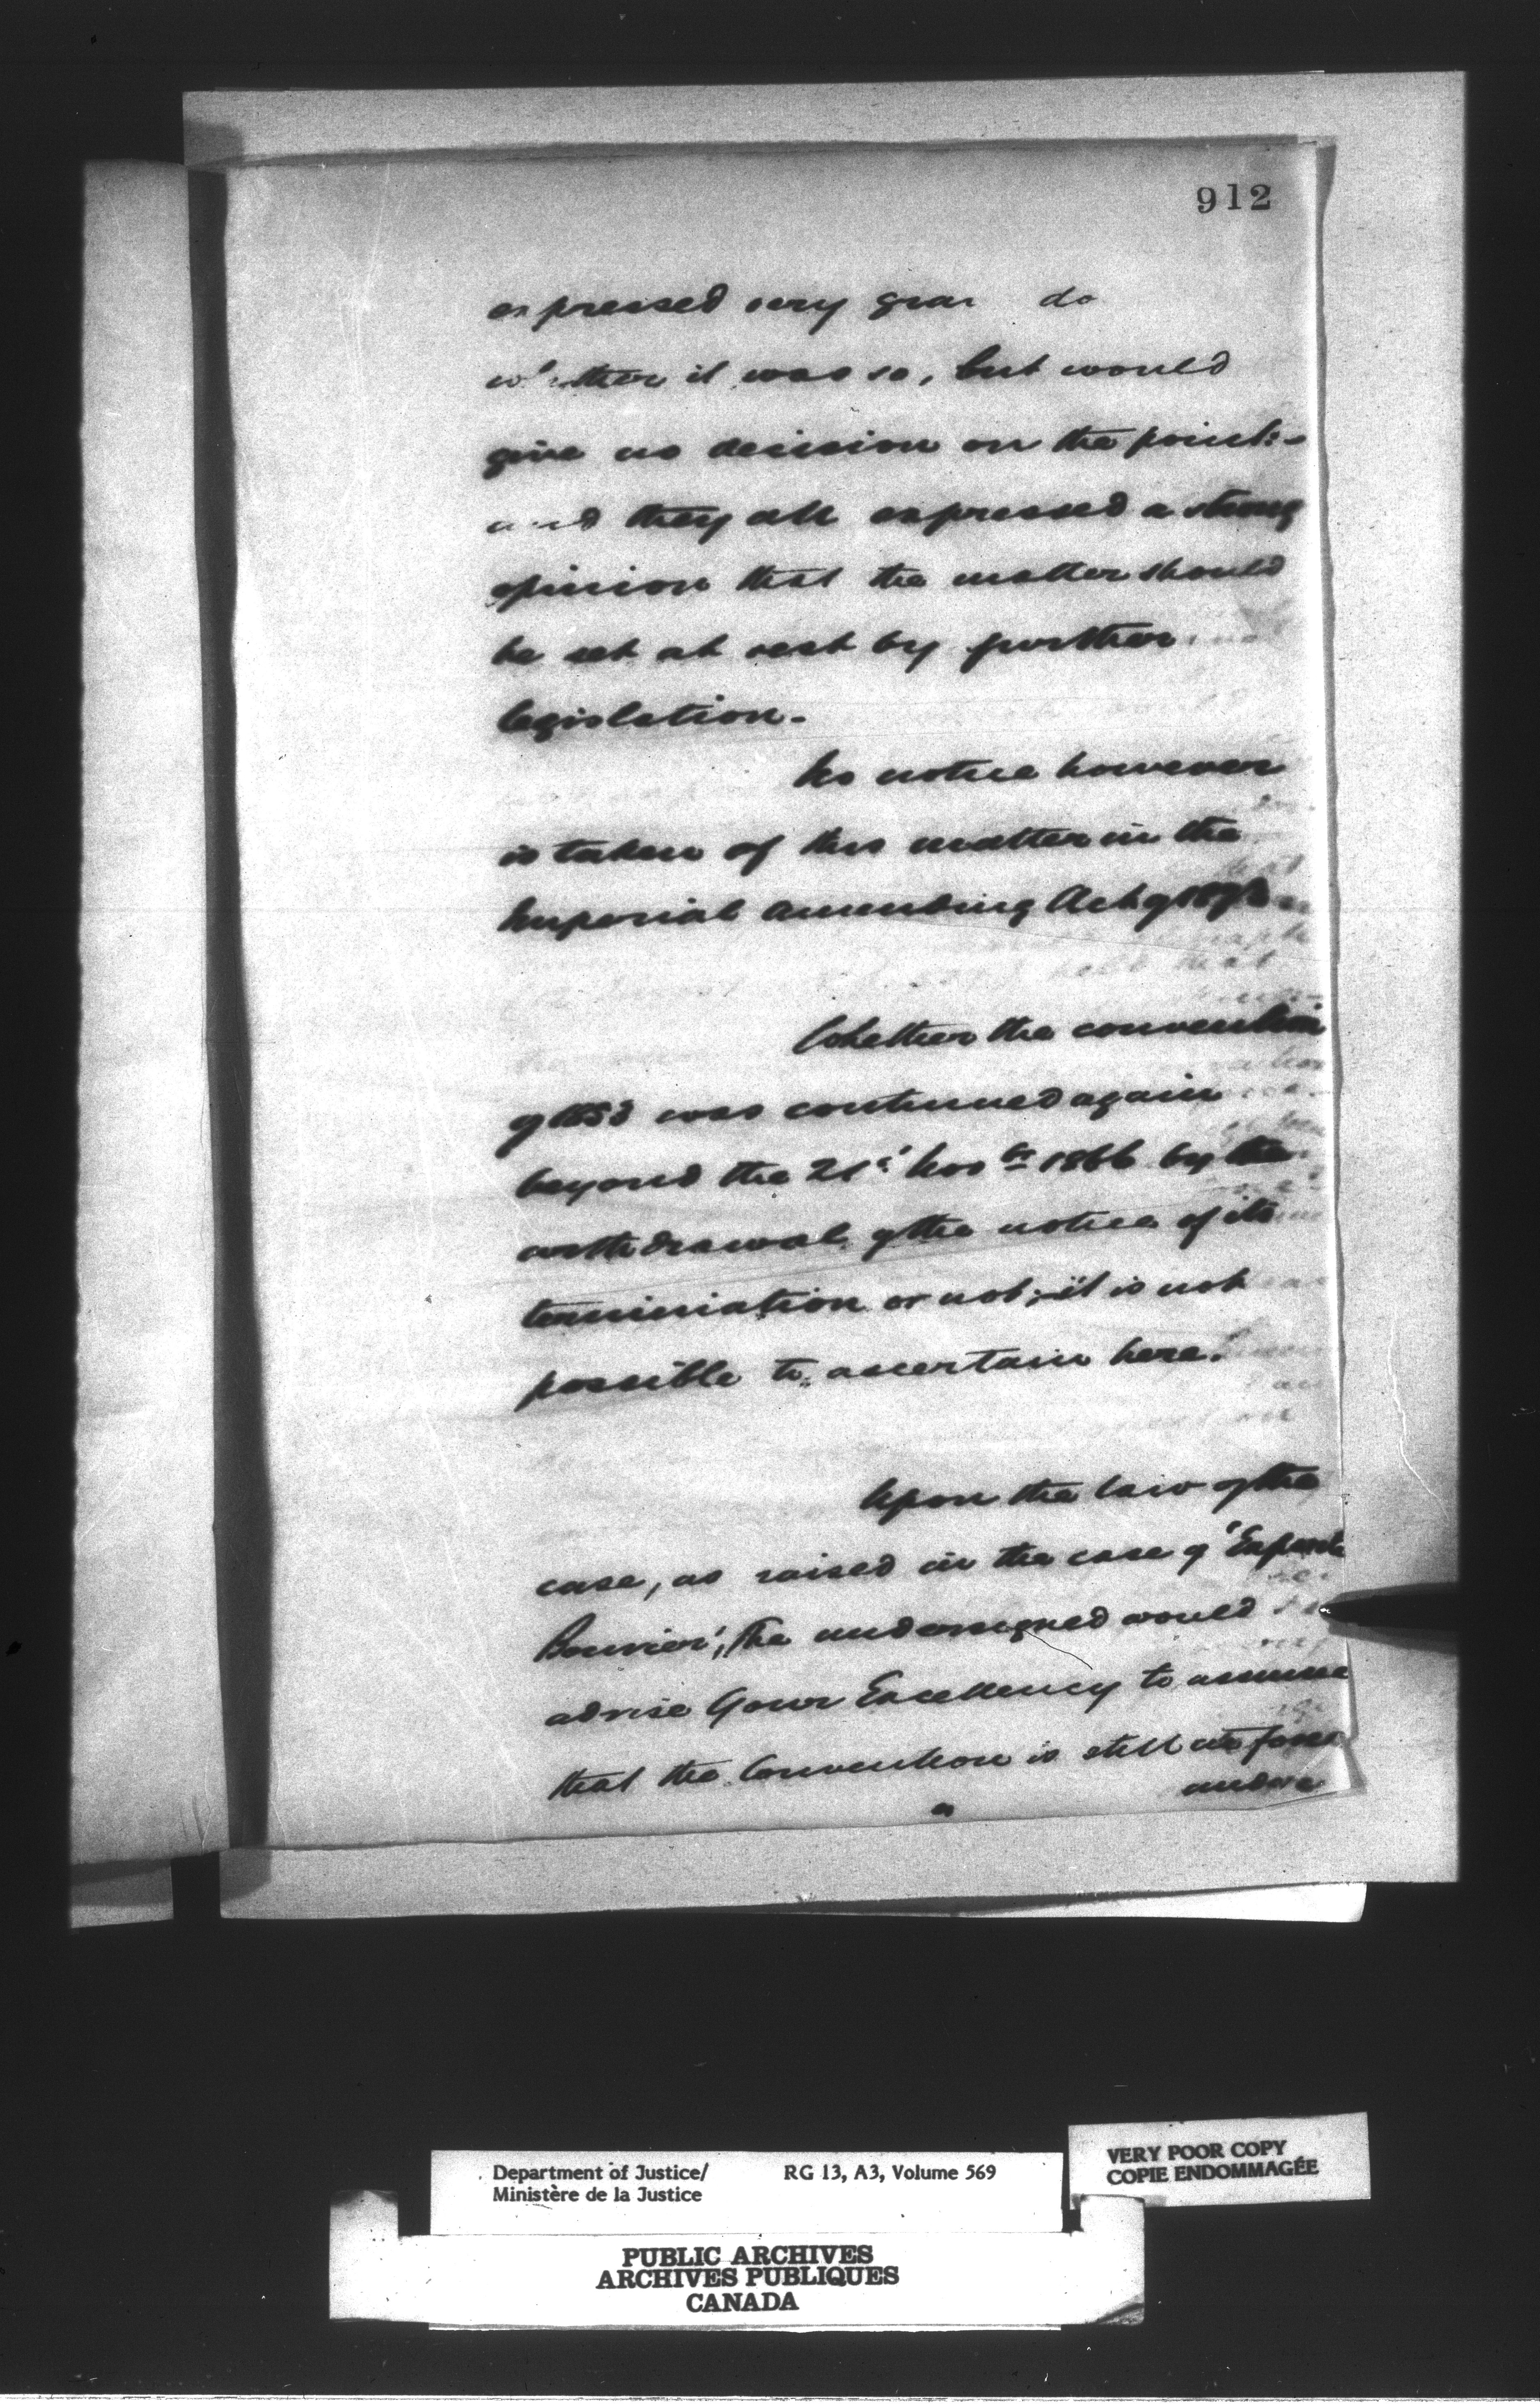 912
expressed very do
whether it was so, but would
give no decision on the point:-
and they all expressed a strong
opinion that the matter should
be set at rest by further
legislation.
No notice however
is taken of this matter in the
Imperial Amending Act of 1873
Whether the convention
of was continued again
beyond the 21st Novr 1866 by the
withdrawal of the notice of its
termination or not, it is not
possible to ascertain here.
Upon the law of the
case, as raised in the case of 'Exparte
Bouvier', the undersigned would
advise Your Excellency to assume
that the Convention is still in force
Department of Justice/ RG 13, A3, Volume 569
Ministère de la Justice
VERY POOR COPY
COPIE ENDOMMAGÉE
PUBLIC ARCHIVES
ARCHIVES PUBLIQUES
CANADA